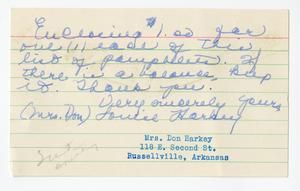 Enclosing $1.00 for
one (1) each of this
list of pamphlets. If
there is a balance, keep
it. Thank you.
Very sincerely yours,
(Mrs. Don) Harkey
Mrs. Don Harkey
118 E. Second St.
Russellville, Arkansas